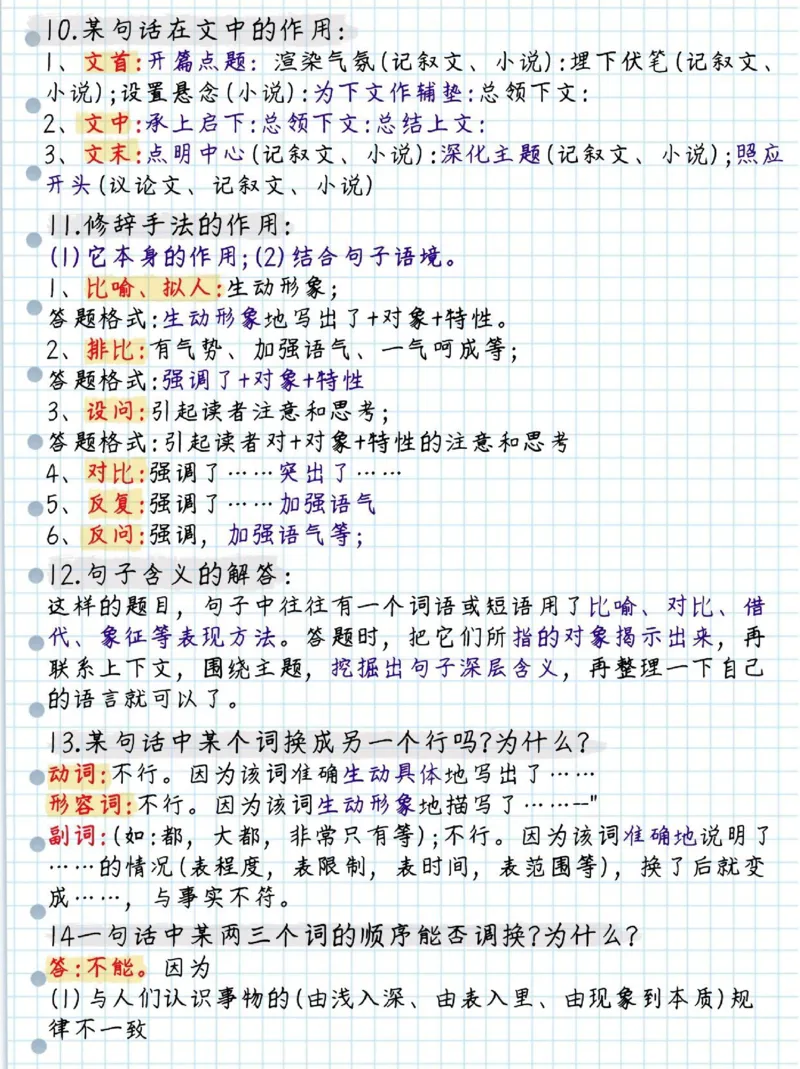 10.某句话在文中的作用:
1、文首:开篇点题: 渲染气氛(记叙文、小说):埋下伏笔(记叙文、
小说);设置悬念(小说):为下文作辅垫:总领下文:
2、文中:承上启下:总领下文:总结上文:
3、文末:点明中心(记叙文、小说):深化主题(记叙文、小说);照应
开头(议论文、记叙文、小说)
11.修辞手法的作用:
(1)它本身的作用;(2)结合句子语境。
1、比喻、拟人:生动形象;
答题格式:生动形象地写出了+对象+特性。
2、排比:有气势、加强语气、一气呵成等;
答题格式:强调了+对象+特性
3、设问:引起读者注意和思考;
答题格式:引起读者对+对象+特性的注意和思考
4、对比:强调了……突出了……
5、反复:强调了……加强语气
6、反问:强调,加强语气等;
12.句子含义的解答:
这样的题目,句子中往往有一个词语或短语用了比喻、对比、借
代、象征等表现方法。答题时,把它们所指的对象揭示出来,再
联系上下文,围绕主题,挖掘出句子深层含义,再整理一下自己
的语言就可以了。
13.某句话中某个词换成另一个行吗?为什么?
动词:不行。因为该词准确生动具体地写出了……
形容词:不行。因为该词生动形象地描写了……--"
副词:(如:都,大都,非常只有等);不行。因为该词准确地说明了
……的情况(表程度,表限制,表时间,表范围等),换了后就变
成……,与事实不符。
14一句话中某两三个词的顺序能否调换?为什么?
答:不能。因为
(1)与人们认识事物的(由浅入深、由表入里、由现象到本质)规
律不一致